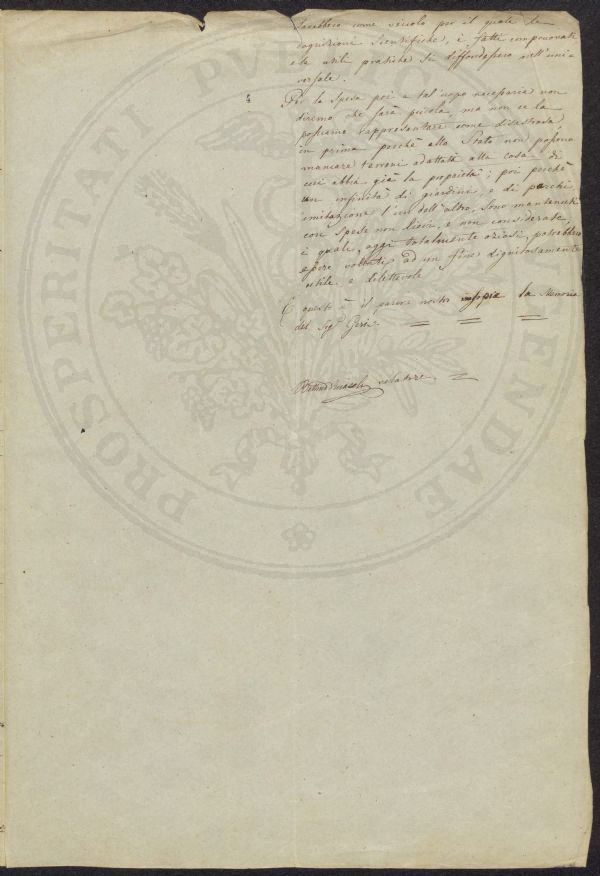 sarebbero come veicolo per il quale le
cognizioni scientifiche, i fatti comprovati
e le utili pratiche si diffondessero nell'uni-
versale.
Per la spesa poi a tal'uopo necessaria non
diremo che sarà piccola, ma non ce la
possiamo rappresentare come disastrosa
in prima perchè allo Stato non possono
mancare terreni adattati alla cosa di
cui abbia già la proprietà; poi perchè
un infinità di giardini, e di parchi
imitazione l'un dell'altro, sono mantenuti
con spese non lievi, e non considerate,
i quali, oggi totalmente oziosi, potrebbero
essere voltati ad un fine dignitosamente
utile e dilettevole
E questo è il parere nostro la Memoria
del Sig.r
relatore.
PROSPERITATI PVBLICAE AVGENDAE